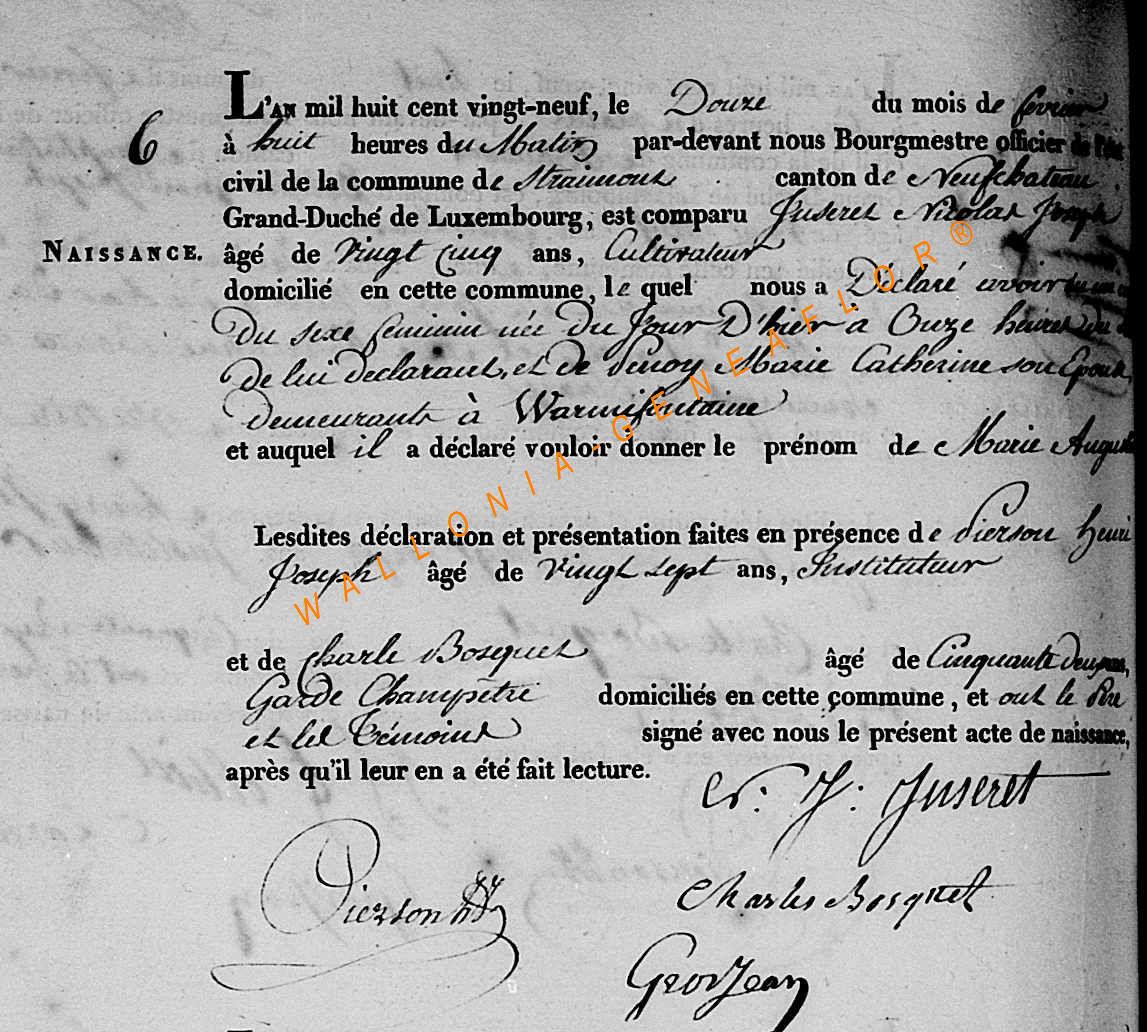 L'AN mil huit cent vingt-neuf, le Douze du mois de fevrier
6
à huit heures du Matin par-devant nous Bourgmestre officier de l'état
civil de la commune de Straimont canton de Neufchateau
Grand-Duché de Luxembourg, est comparu Juseret Nicolas Joseph
NAISSANCE.
âgé de vingt cinq ans, Cultivateur
domicilié en cette commune, le quel nous a Déclaré avoir
Du sexe feminin née du Jour D'hier à Onze heures du
De lui declarant, et de Penoy Marie Catherine son Epouse
demeurants à Warmifontaine
et auquel il a déclaré vouloir donner le prénom de Marie
Lesdites déclaration et présentation faites en présence de Pierson henri
Joseph âgé de vingt sept ans, Instituteur
et de Charle Bosquet âgé de Cinquante deux ans,
Garde Champetre domiciliés en cette commune, et ont le Père
et les Témoins signé avec nous le présent acte de naissance,
après qu'il leur en a été fait lecture.
N: J: Juseret
Pierson
Charles Bosquet
GeorJean
WALLONIA-GENEAFLOR®